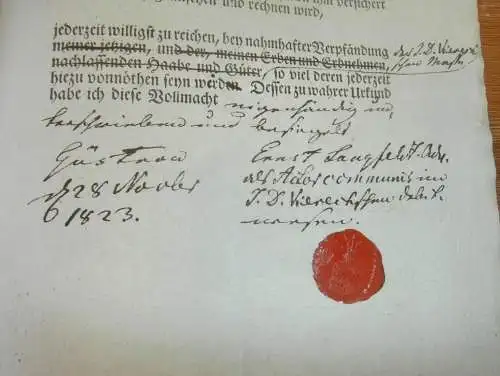 versichert
und rechnen wird,
jederzeit willigst zu reichen, bey nahmhafter Verpfändung
meiner jetzigen, und der, meinen Erben und Erbnehmen,
nachlassenden Haabe und Güter, so viel deren jederzeit
hiezu vonnöthen seyn werden. Dessen zu wahrer Urkund
habe ich diese Vollmacht eigenhändig un-
terschrieben und besiegelt
Güstrow
d 28 Novbr
1823.
Ernst Langfeldt Adv.
als Actor communis im
J. D. Viereckschen Debit-
wesen.